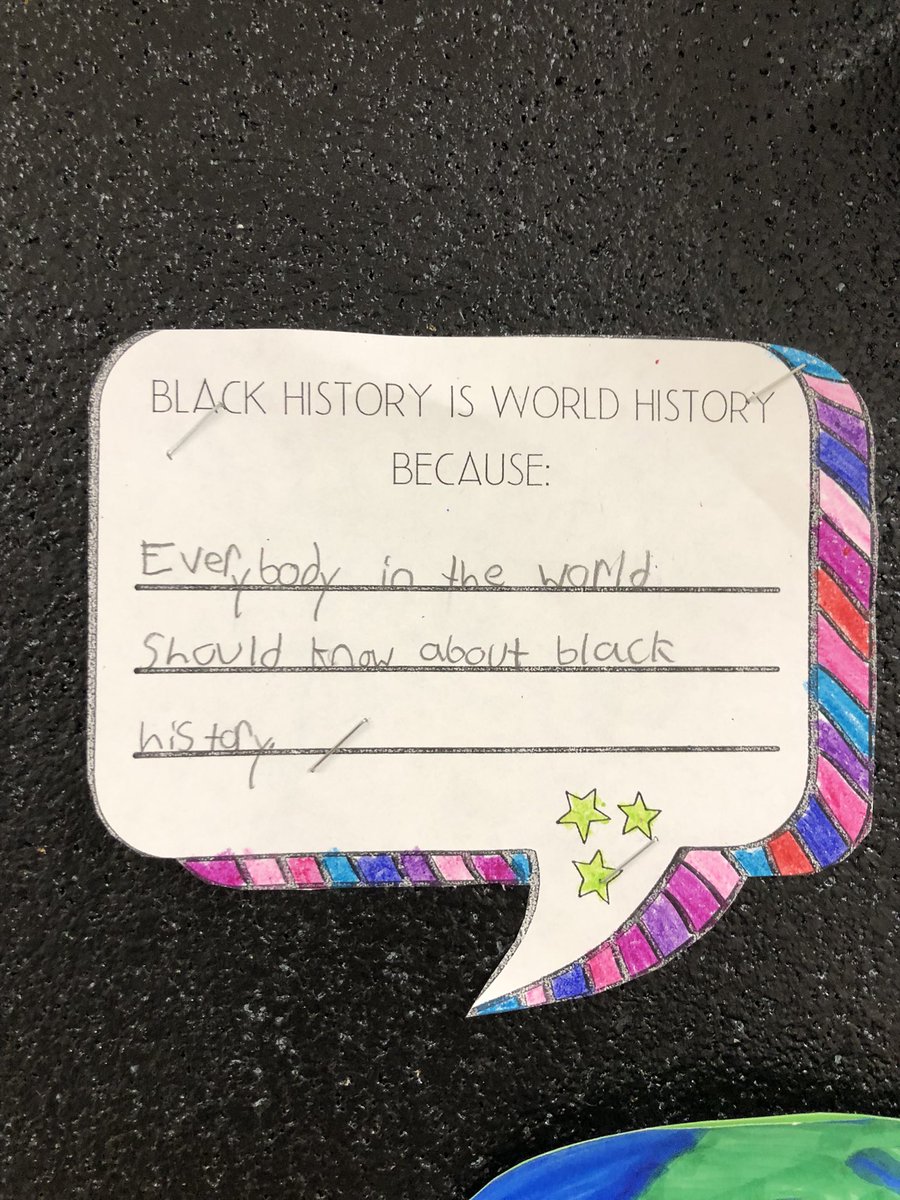 BLACK HISTORY IS WORLD HISTORY
BECAUSE:
Everybody in the world
Should know about black
history.